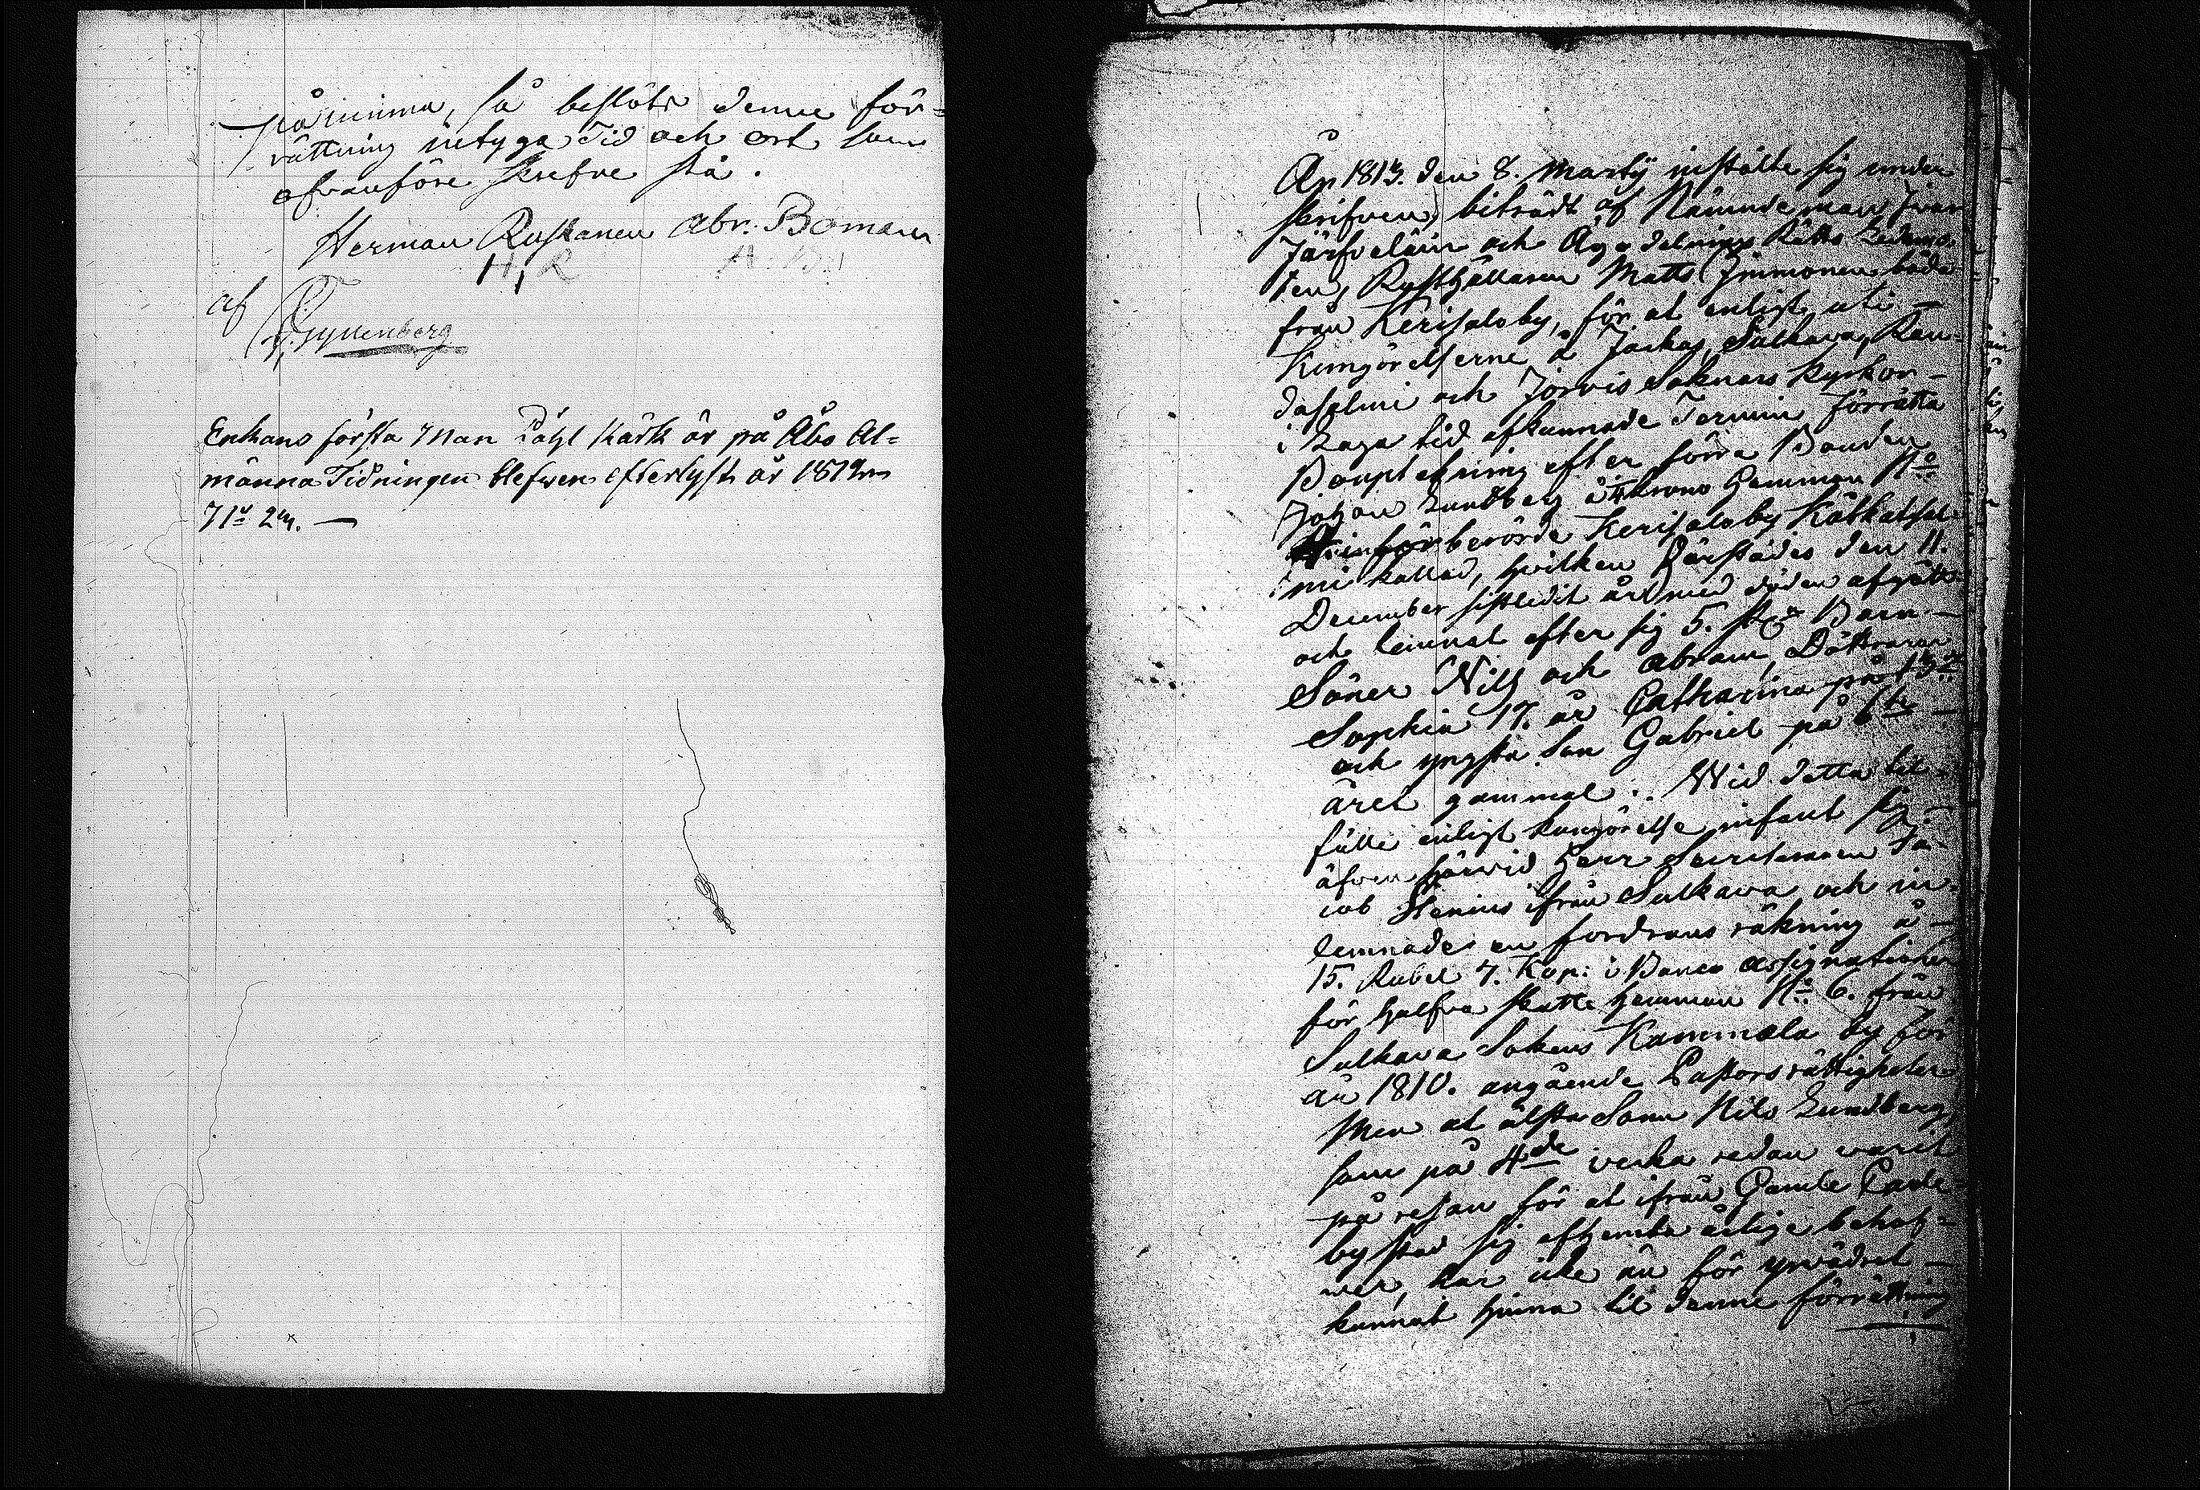 påminna, så beslöts denne för=
rättning intyga Tid och ort som
ofvanföre skrefne stå.
Herman Ruskanen Abr. Boman
H, R A. B.
af
Gyllenberg
Enkans första Man Påhl Kärk är på Åbo Al=
männa Tidningen blefwen efterlyst år 1812
71 2
År 1813. den 8. Martij instälte sig under
skrifven, biträdt af Nämndeman Ivar
Järfveläin och Ägodelnings Rätts Ledamo-
ten, Rusthållaren Matts Immonen både
från Kerisalo by, för at enligt uti-
Kungörelserne i Jockas, Sulkava, Ran-
dasalmi och Jorvis Soknars kyrkor-
i Laga tid afkunnade Termin förrätta
Bouptekning efter förre Bonden
Johan Lundberg å Krono Hemman No
berörde Kerisalo by
mi kallad, hvilken därstädes den 11.
December sistledit år med döden afgått
och lemnat efter sig 5. st. Barn-
Söner Nils och Abram, Döttrarne
Sophia 17. år Catharina på 13de
och yngsta Son Gabriel på 6te
året gammal. Wid detta til-
fälle enligt kungörelse infant sig-
äfven härvid Herr Ja-
cob Stenius ifrån Sulkava och in-
lemnade en fordrans räkning å-
15. Rubel 7. Kop: i Banco assignationer
för halfva skatte hemman No 6. från
Sulkava Sokens Kammala by för
år 1810. angående Pastors rättigheter
Men at älsta Sonen Nils Lundberg,
som på 4de vecka redan varit
på resan för at ifrån Gamle Carle-
by stad sig afhemta ärlige behof-
wer, har icke än för yrwädret-
kunnat hinna til denne förrättning